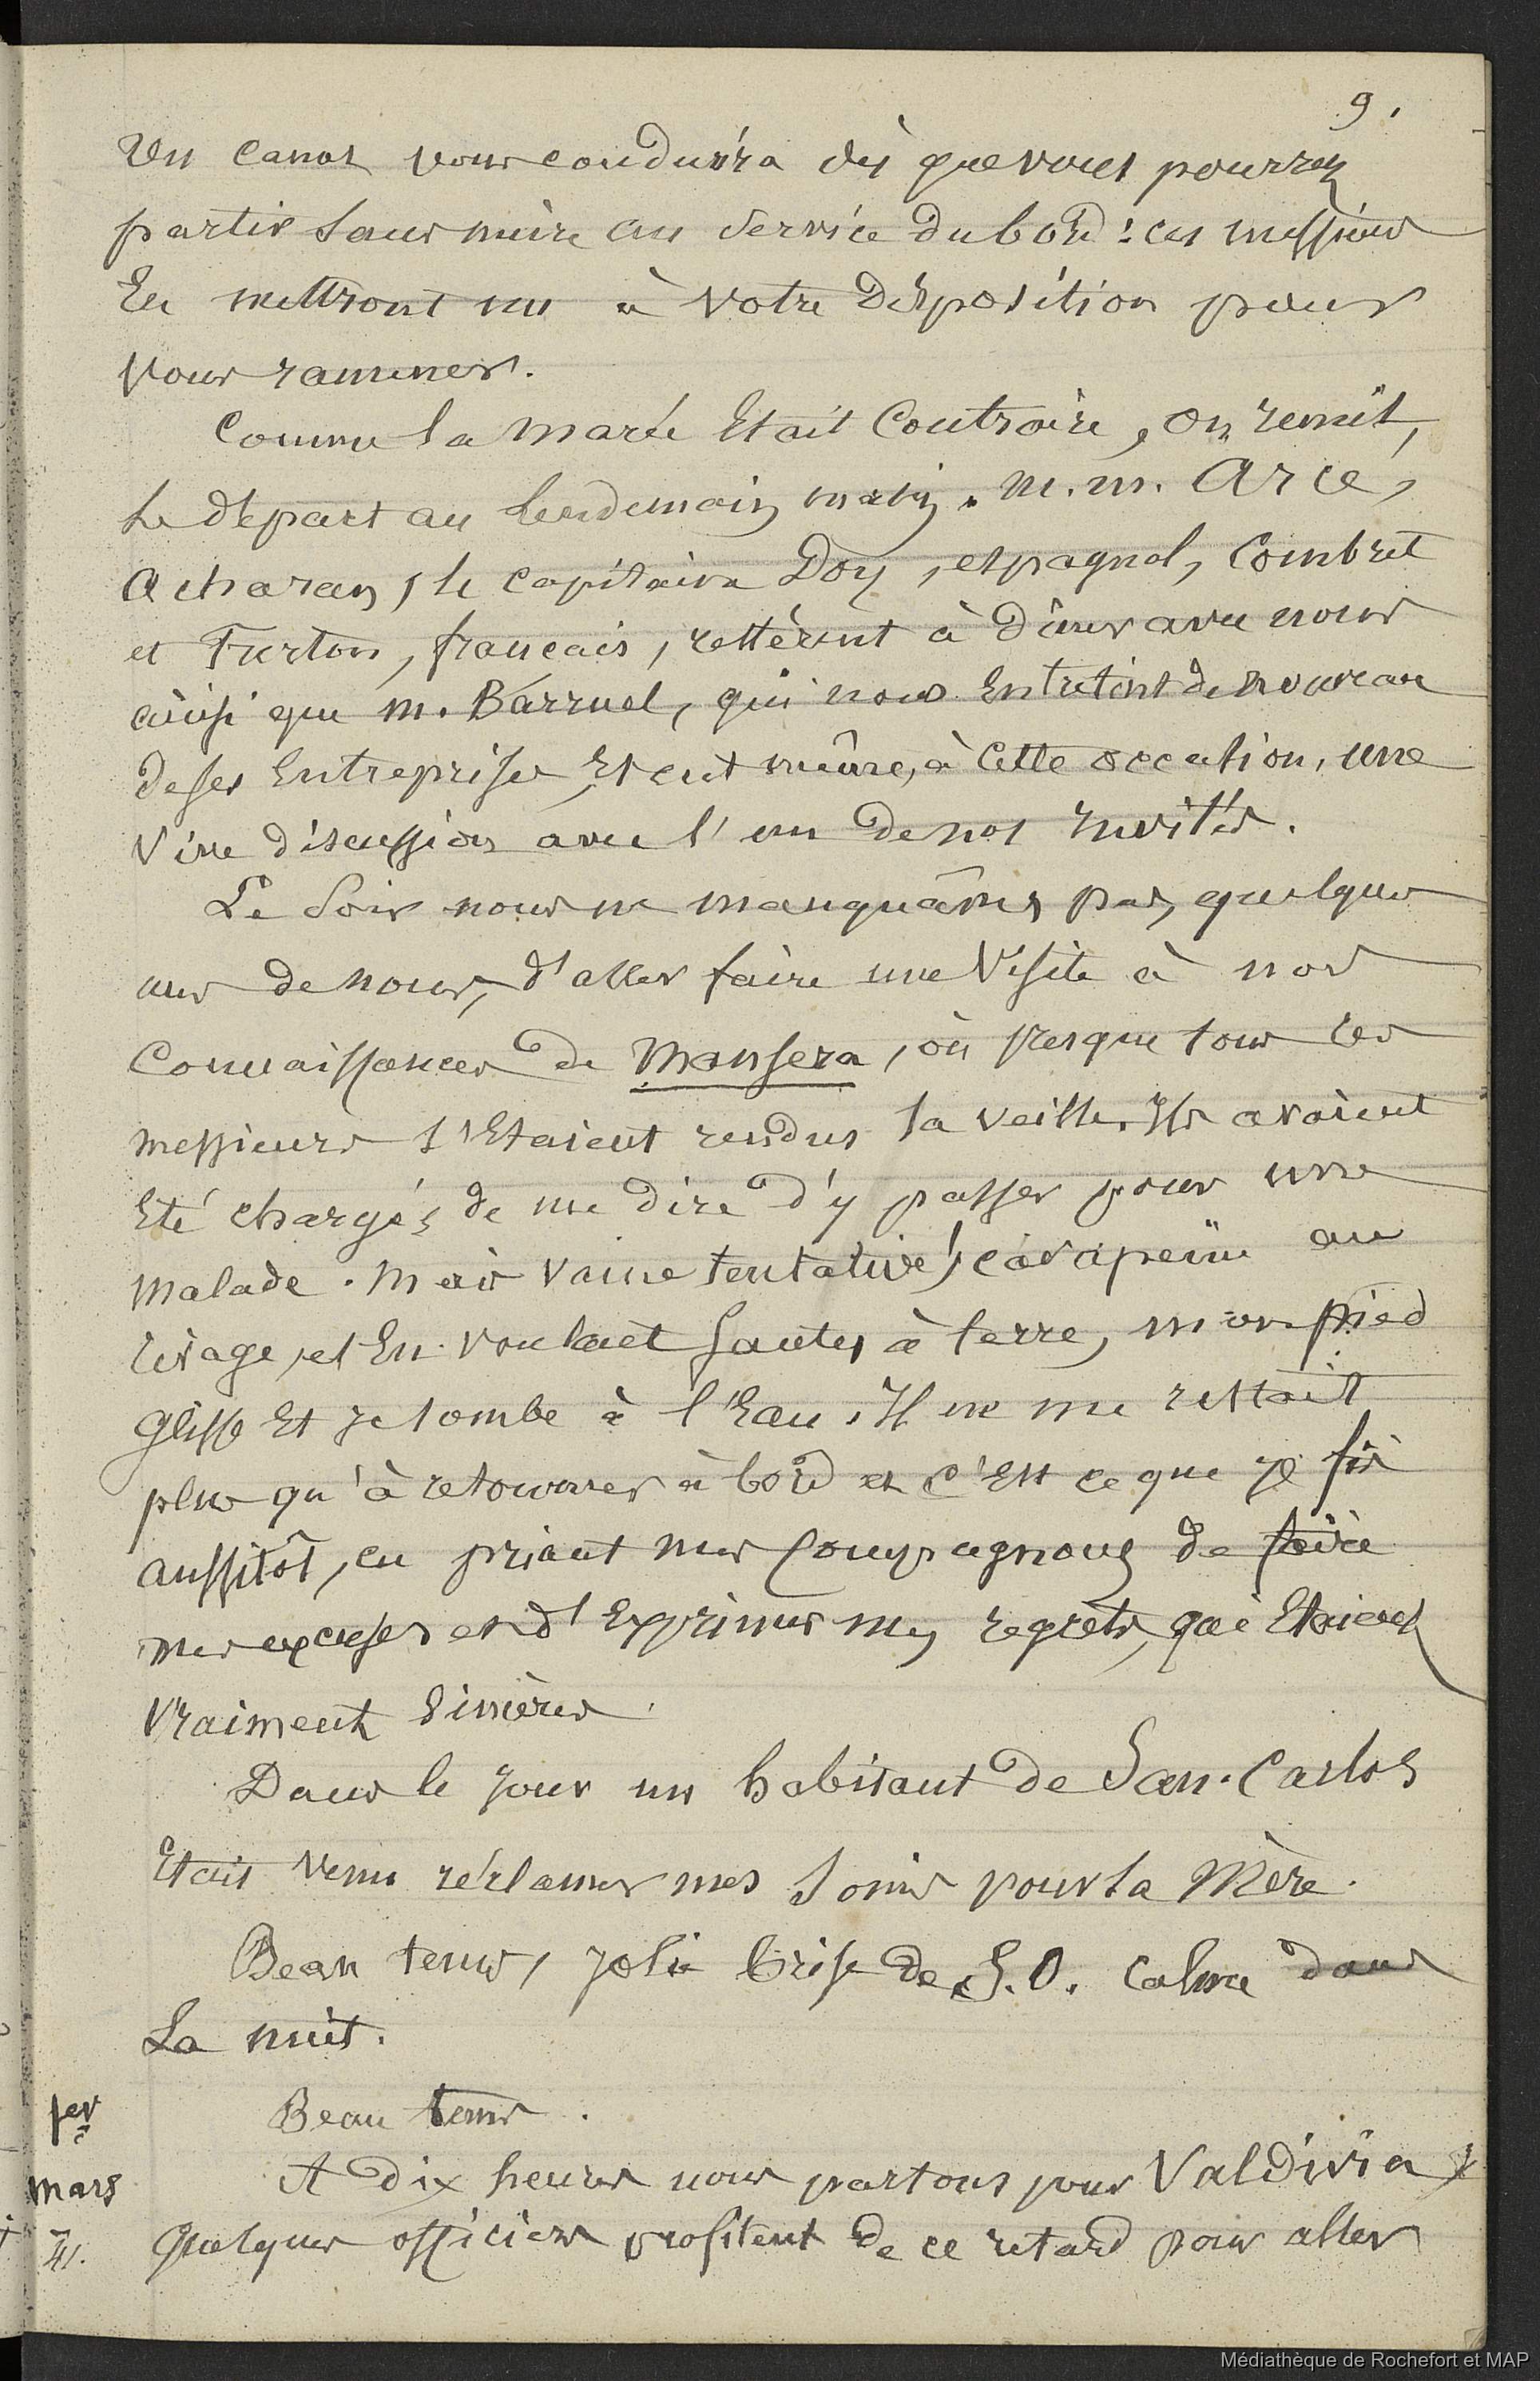 9.
Un canot vous conduira dès que vous pourrez
partir sans nuire au service du bord : ces messieurs
En mettront un à votre disposition pour
vous ramener.
Comme la marée Etait Contraire, on remit,
le départ au lendemain matin. M.M. Arce,
Acharan, le capitaine Doy, espagnol, Combret
et Furton, français, restèrent à dîner avec nous
ainsi que M. Barruel, qui nous Entretint de nouveau
de ses Entreprises, Et eut même, à cette occasion, une
vive discussion avec l'un de nos invités.
Le soir nous ne manquâmes pas, quelques
uns de nous, d'aller faire une visite à nos
Connaissances de Mansera, où presque tous ces
messieurs s'Etaient rendus la veille. Ils avaient
Eté chargés de me dire d'y passer pour une
malade. Mais vaine tentative! car à peine au
rivage, et En voulant sauter à terre, mon pied
glisse Et je tombe à l'Eau. Il ne me restait
plus qu'à retourner à bord et c'Est ce que je fis
aussitôt, en priant mes compagnons de faire
mes excuses et d'Exprimer mes regrets, qui Etaient
vraiment sincères.
Dans le jour un habitant de San-Carlos
Etait venu réclamer mes soins pour sa Mère.
Beau tems, jolie brise de S.O. calme dans
La nuit.
1er Beau tems.
mars A dix heures nous partons pour Valdivia;
41. Quelques officiers profitent de ce retard pour aller
Médiathèque de Rochefort et MAP